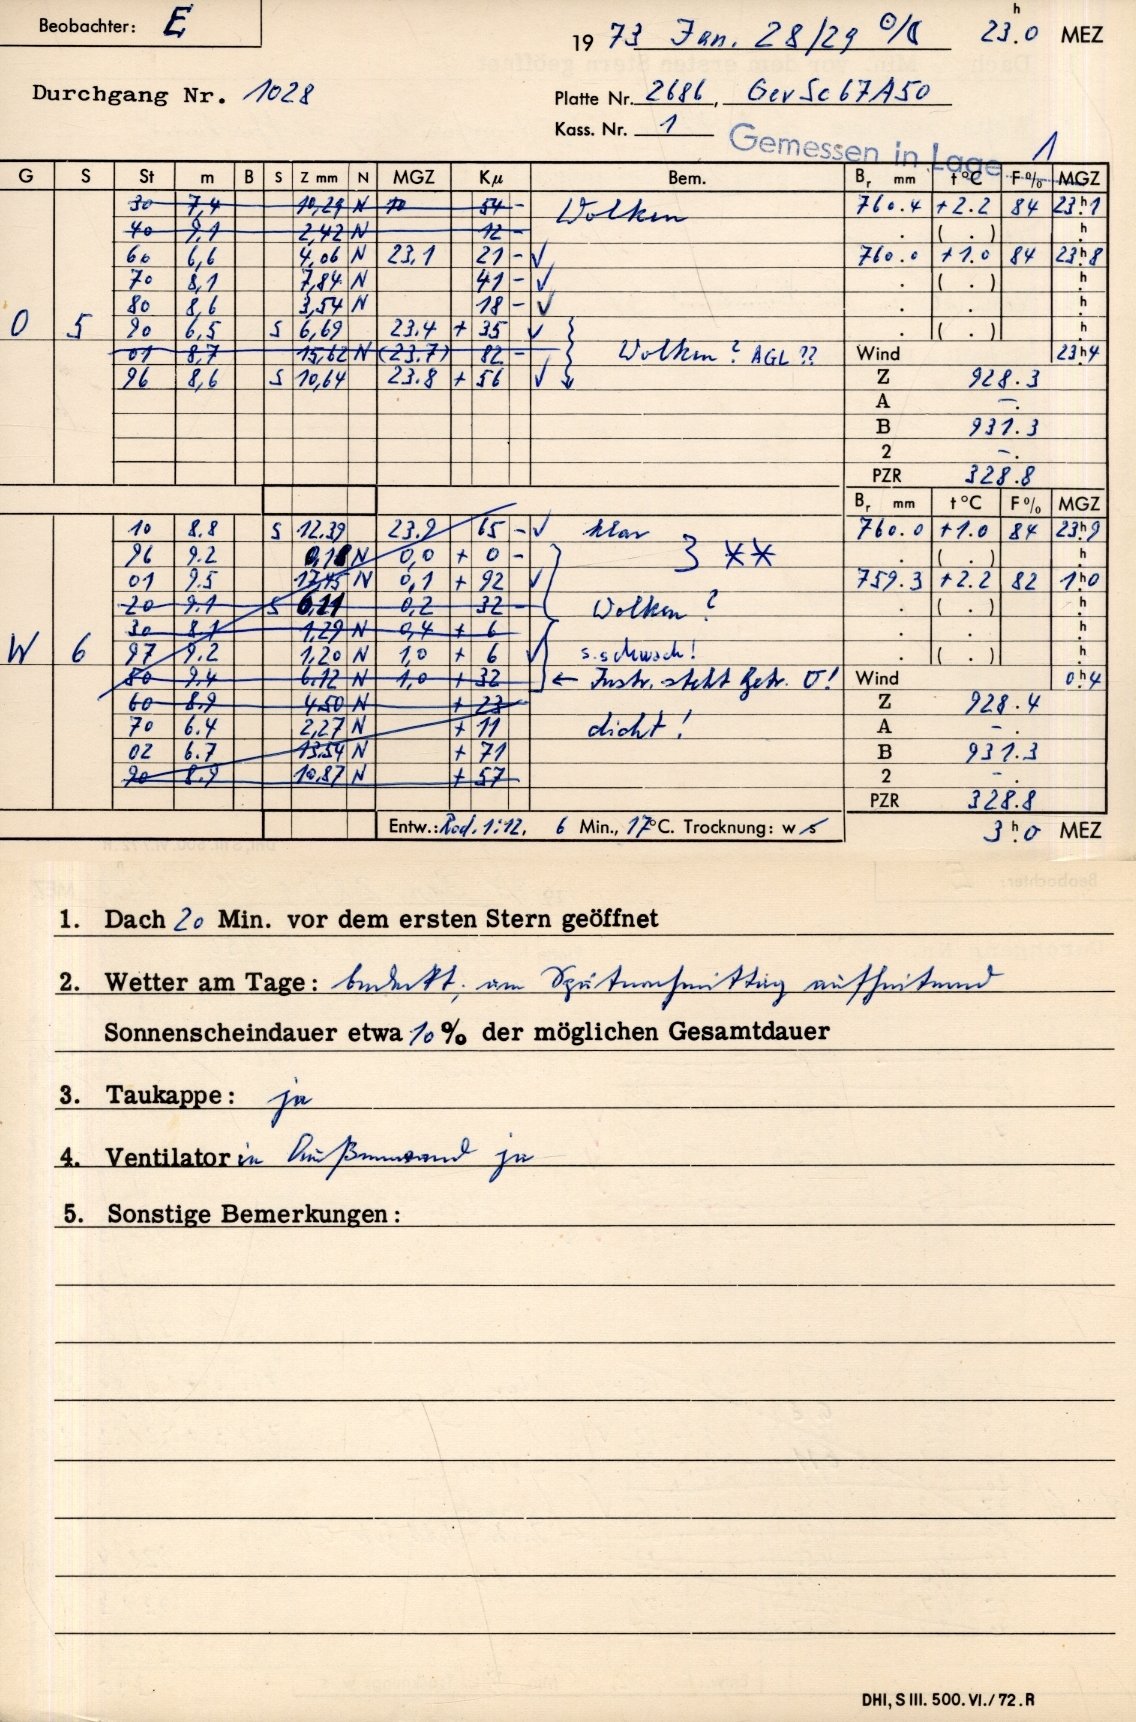 Beobachter: E
1973 Jan. 28/29 23h.0 MEZ
Durchgang Nr. 1028
Platte Nr. 2686, GevSc67A50
Kass. Nr. 1
Gemessen in Lage 1
G S St m B S Z mm N MGZ Kμ Bem. Br mm t°C F% MGZ
30 7,4 10,29 N 54 - Wolken 760.4 +2.2 84 23h.1
40 9,1 2,42 N 12 - . ( . ) h.
60 6,6 4,06 N 23.1 21 - ✓ 760.0 +1.0 84 23h.8
70 8,1 7,84 N 41 - ✓ . ( . ) h.
80 8,6 3,54 N 18 - ✓ . . h.
O 5 90 6,5 S 6,69 23.4 + 35 ✓ . ( . ) h.
01 8,7 15,62 N (23.7) 82 - Wolken? AGL?? Wind 23h.4
96 8,6 S 10,64 23.8 + 56 ✓ Z 928.3
A -.
B 931.3
2 -.
PZR 328.8
Br mm t°C F% MGZ
10 8.8 S 12.39 23.9 65 - ✓ klar 760.0 +1.0 84 23h.9
96 9.2 0,18 N 0,0 + 0 - 3 ** . ( . ) h.
01 9.5 17,45 N 0,1 + 92 ✓ 759.3 +2.2 82 1h.0
20 9.1 S 6,21 0,2 32 - Wolken? . ( . ) h.
30 8.1 1,29 N 0,4 + 6 . . h.
W 6 97 9.2 1,20 N 1,0 + 6 ✓ s.schwach! . ( . ) h.
80 9.4 6.12 N 1,0 + 32 ← Instr. steht Getr. O! Wind 0h.4
60 8.9 4.50 N + 23 Z 928.4
70 6.4 2,27 N + 11 dicht! A -.
02 6.7 13.54 N + 71 B 931.3
90 8.9 10,87 N + 57 2 -.
PZR 328.8
Entw.: Rod. 1:12, 6 Min., 17°C. Trocknung: w s 3h.0 MEZ
1. Dach 20 Min. vor dem ersten Stern geöffnet
2. Wetter am Tage: bedeckt, am Spätnachmittag aufheiternd
Sonnenscheindauer etwa 10% der möglichen Gesamtdauer
3. Taukappe: ja
4. Ventilator in Außenwand ja
5. Sonstige Bemerkungen:
DHI, S III. 500. VI./72. R